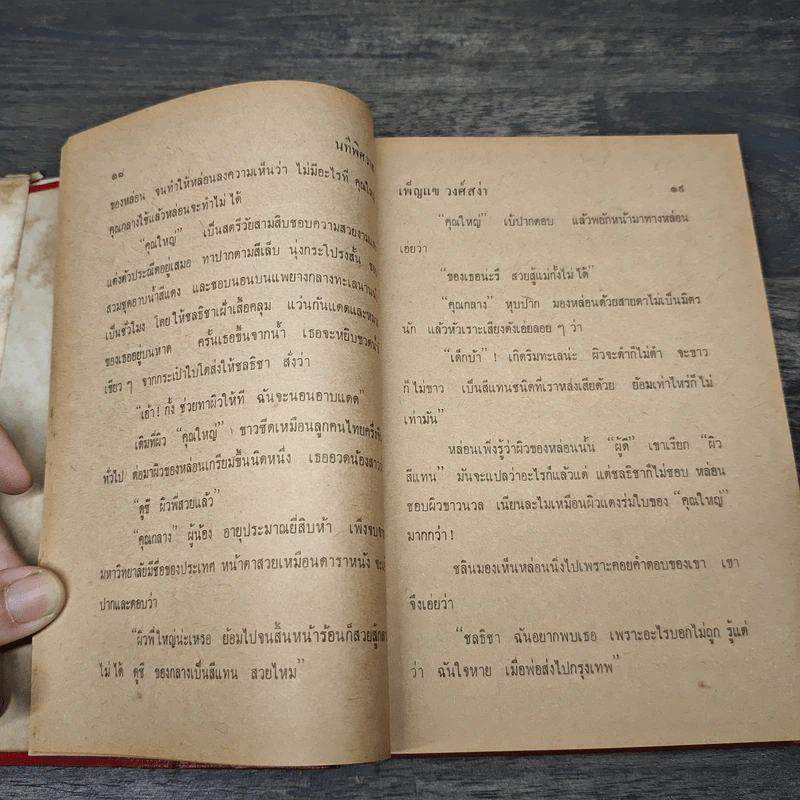 ๑๘ นทีพิศวาส
ของหล่อน จนทำให้หล่อนลงความเห็นว่า ไม่มีอะไรที่ คุณใหญ่
คุณกลางใช้แล้วหล่อนจะทำไม่ได้
“คุณใหญ่” เป็นสตรีวัยสามสิบชอบความสวยงาม
แต่งตัวประณีตอยู่เสมอ ทาปากตามสีเล็บ นุ่งกระโปรงสั้น
สวมชุดอาบน้ำสีแดง และชอบนอนบนแพยางกลางทะเลนานนับ
เป็นชั่วโมง โดยให้ชลธิชาเฝ้าเสื้อคลุม แว่นกันแดดและหมวก
ของเธออยู่บนหาด ครั้นเธอขึ้นจากน้ำ เธอจะหยิบขวดน้ำ
เขียว ๆ จากกระเป๋าใบโตส่งให้ชลธิชา สั่งว่า
“เอ้า! กั้ง ช่วยทาผิวให้ที ฉันจะนอนอาบแดด”
เดิมทีผิว “คุณใหญ่” ขาวซีดเหมือนลูกคนไทยครึ่งจีน
ทั่วไป ต่อมาผิวของหล่อนเกรียมขึ้นนิดหนึ่ง เธออวดน้องสาวว่า
“ดูซี ผิวพี่สวยแล้ว”
“คุณกลาง” ผู้น้อง อายุประมาณยี่สิบห้า เพิ่งจบจาก
มหาวิทยาลัยมีชื่อของประเทศ หน้าตาสวยเหมือนดาราหนัง
ปากและตอบว่า
“ผิวพี่ใหญ่น่ะเหรอ ย้อมไปจนสิ้นหน้าร้อนก็สวยสู้กลาง
ไม่ได้ ดูซี ของกลางเป็นสีแทน สวยไหม”
เพ็ญแข วงศ์สง่า ๑๙
“คุณใหญ่” เบ้ปากตอบ แล้วพยักหน้ามาทางหล่อน
เอยว่า
“ของเธอน่ะรึ สวยสู้แม่กั้งไม่ได้”
“คุณกลาง” หุบปาก มองหล่อนด้วยสายตาไม่เป็นมิตร
นัก แล้วหัวเราะเสียงดังเอ่ยลอย ๆ ว่า
“เด็กบ้า”! เกิดริมทะเลน่ะ ผิวจะดำก็ไม่ดำ จะขาว
ก็ไม่ขาว เป็นสีแทนชนิดที่เราหลงเสียด้วย ย้อมเท่าไหร่ก็ไม่
เท่ามัน”
หล่อนเพิ่งรู้ว่าผิวของหล่อนนั้น “ผู้ดี” เขาเรียก “ผิว
สีแทน” มันจะแปลว่าอะไรก็แล้วแต่ แต่ชลธิชาก็ไม่ชอบ หล่อน
ชอบผิวขาวนวล เนียนละไมเหมือนผิวแตงร่มใบของ “คุณใหญ่”
มากกว่า!
ชลินมองเห็นหล่อนนิ่งไปเพราะคอยคำตอบของเขา เขา
จึงเอ่ยว่า
“ชลธิชา ฉันอยากพบเธอ เพราะอะไรบอกไม่ถูก รู้แต่
ว่า ฉันใจหาย เมื่อพ่อส่งไปกรุงเทพ”